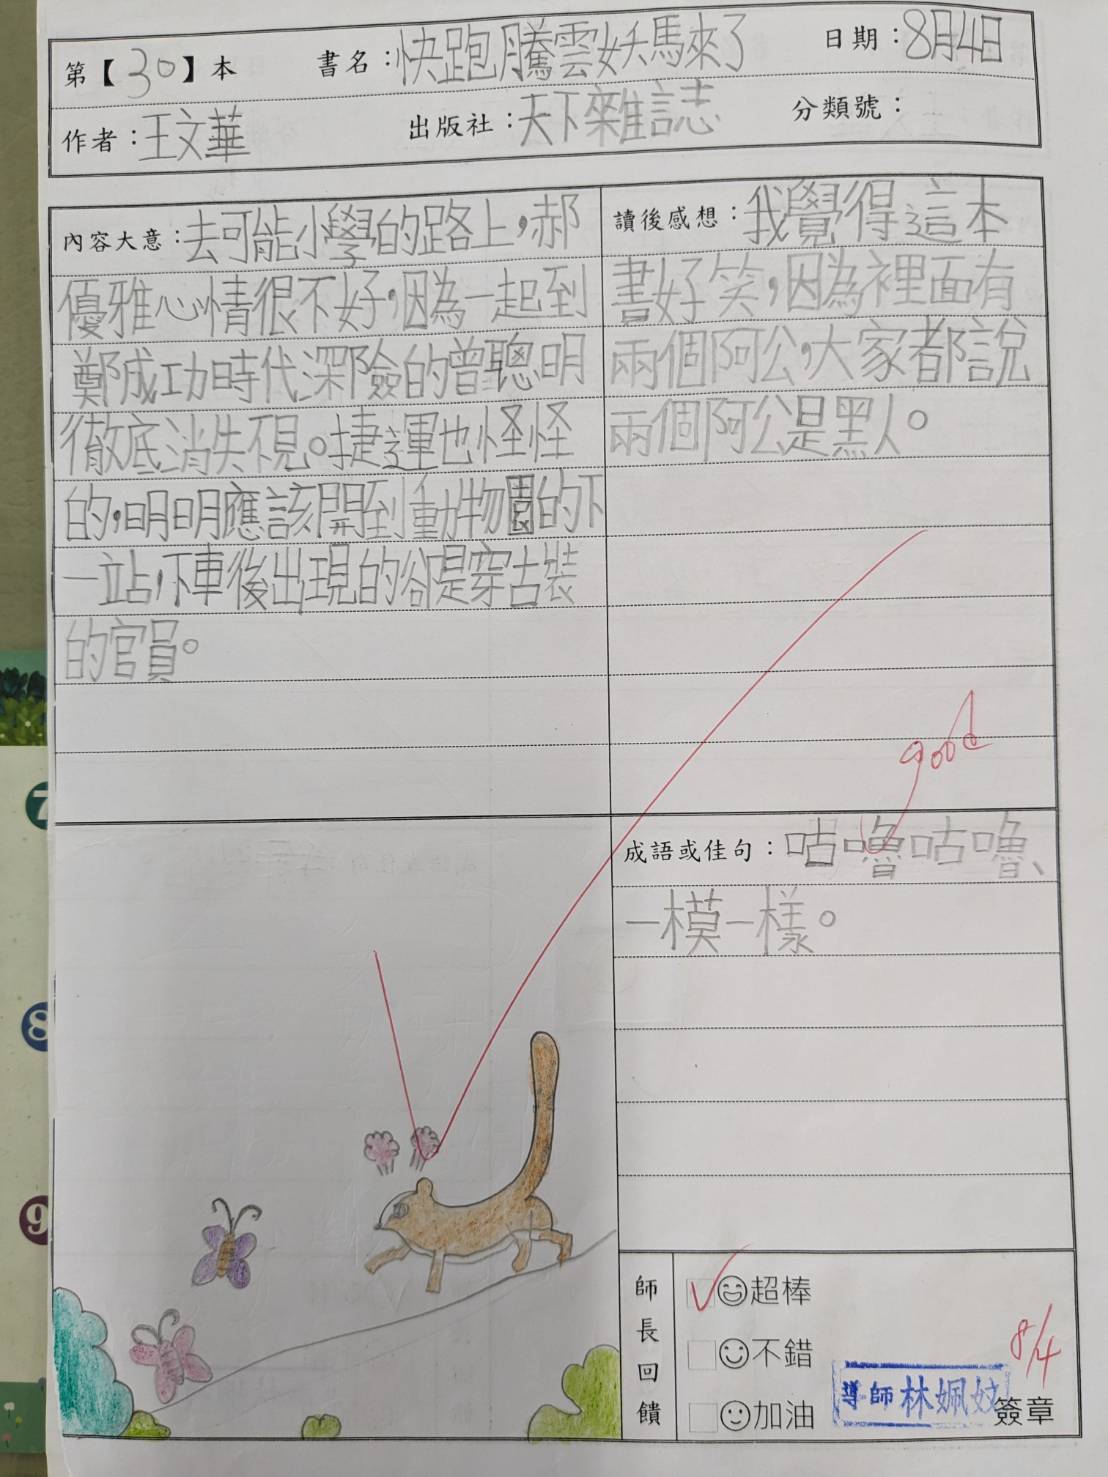 第【30】本 書名：快跑騰雲妖馬來了 日期：8月4日
作者：王文華 出版社：天下雜誌 分類號：
內容大意：去可能小學的路上，郝
優雅心情很不好，因為一起到
鄭成功時代深險的曾聰明
徹底消失不見。捷運也怪怪
的，明明應該開到動物園的下
一站，下車後出現的卻是穿古裝
的官員。
讀後感想：我覺得這本
書好笑，因為裡面有
兩個阿公，大家都說
兩個阿公是黑人。
good
成語或佳句：咕嚕咕嚕、
一模一樣。
師長回饋
超棒
不錯
加油
8/4
導師林姵妏 簽章
7
8
9